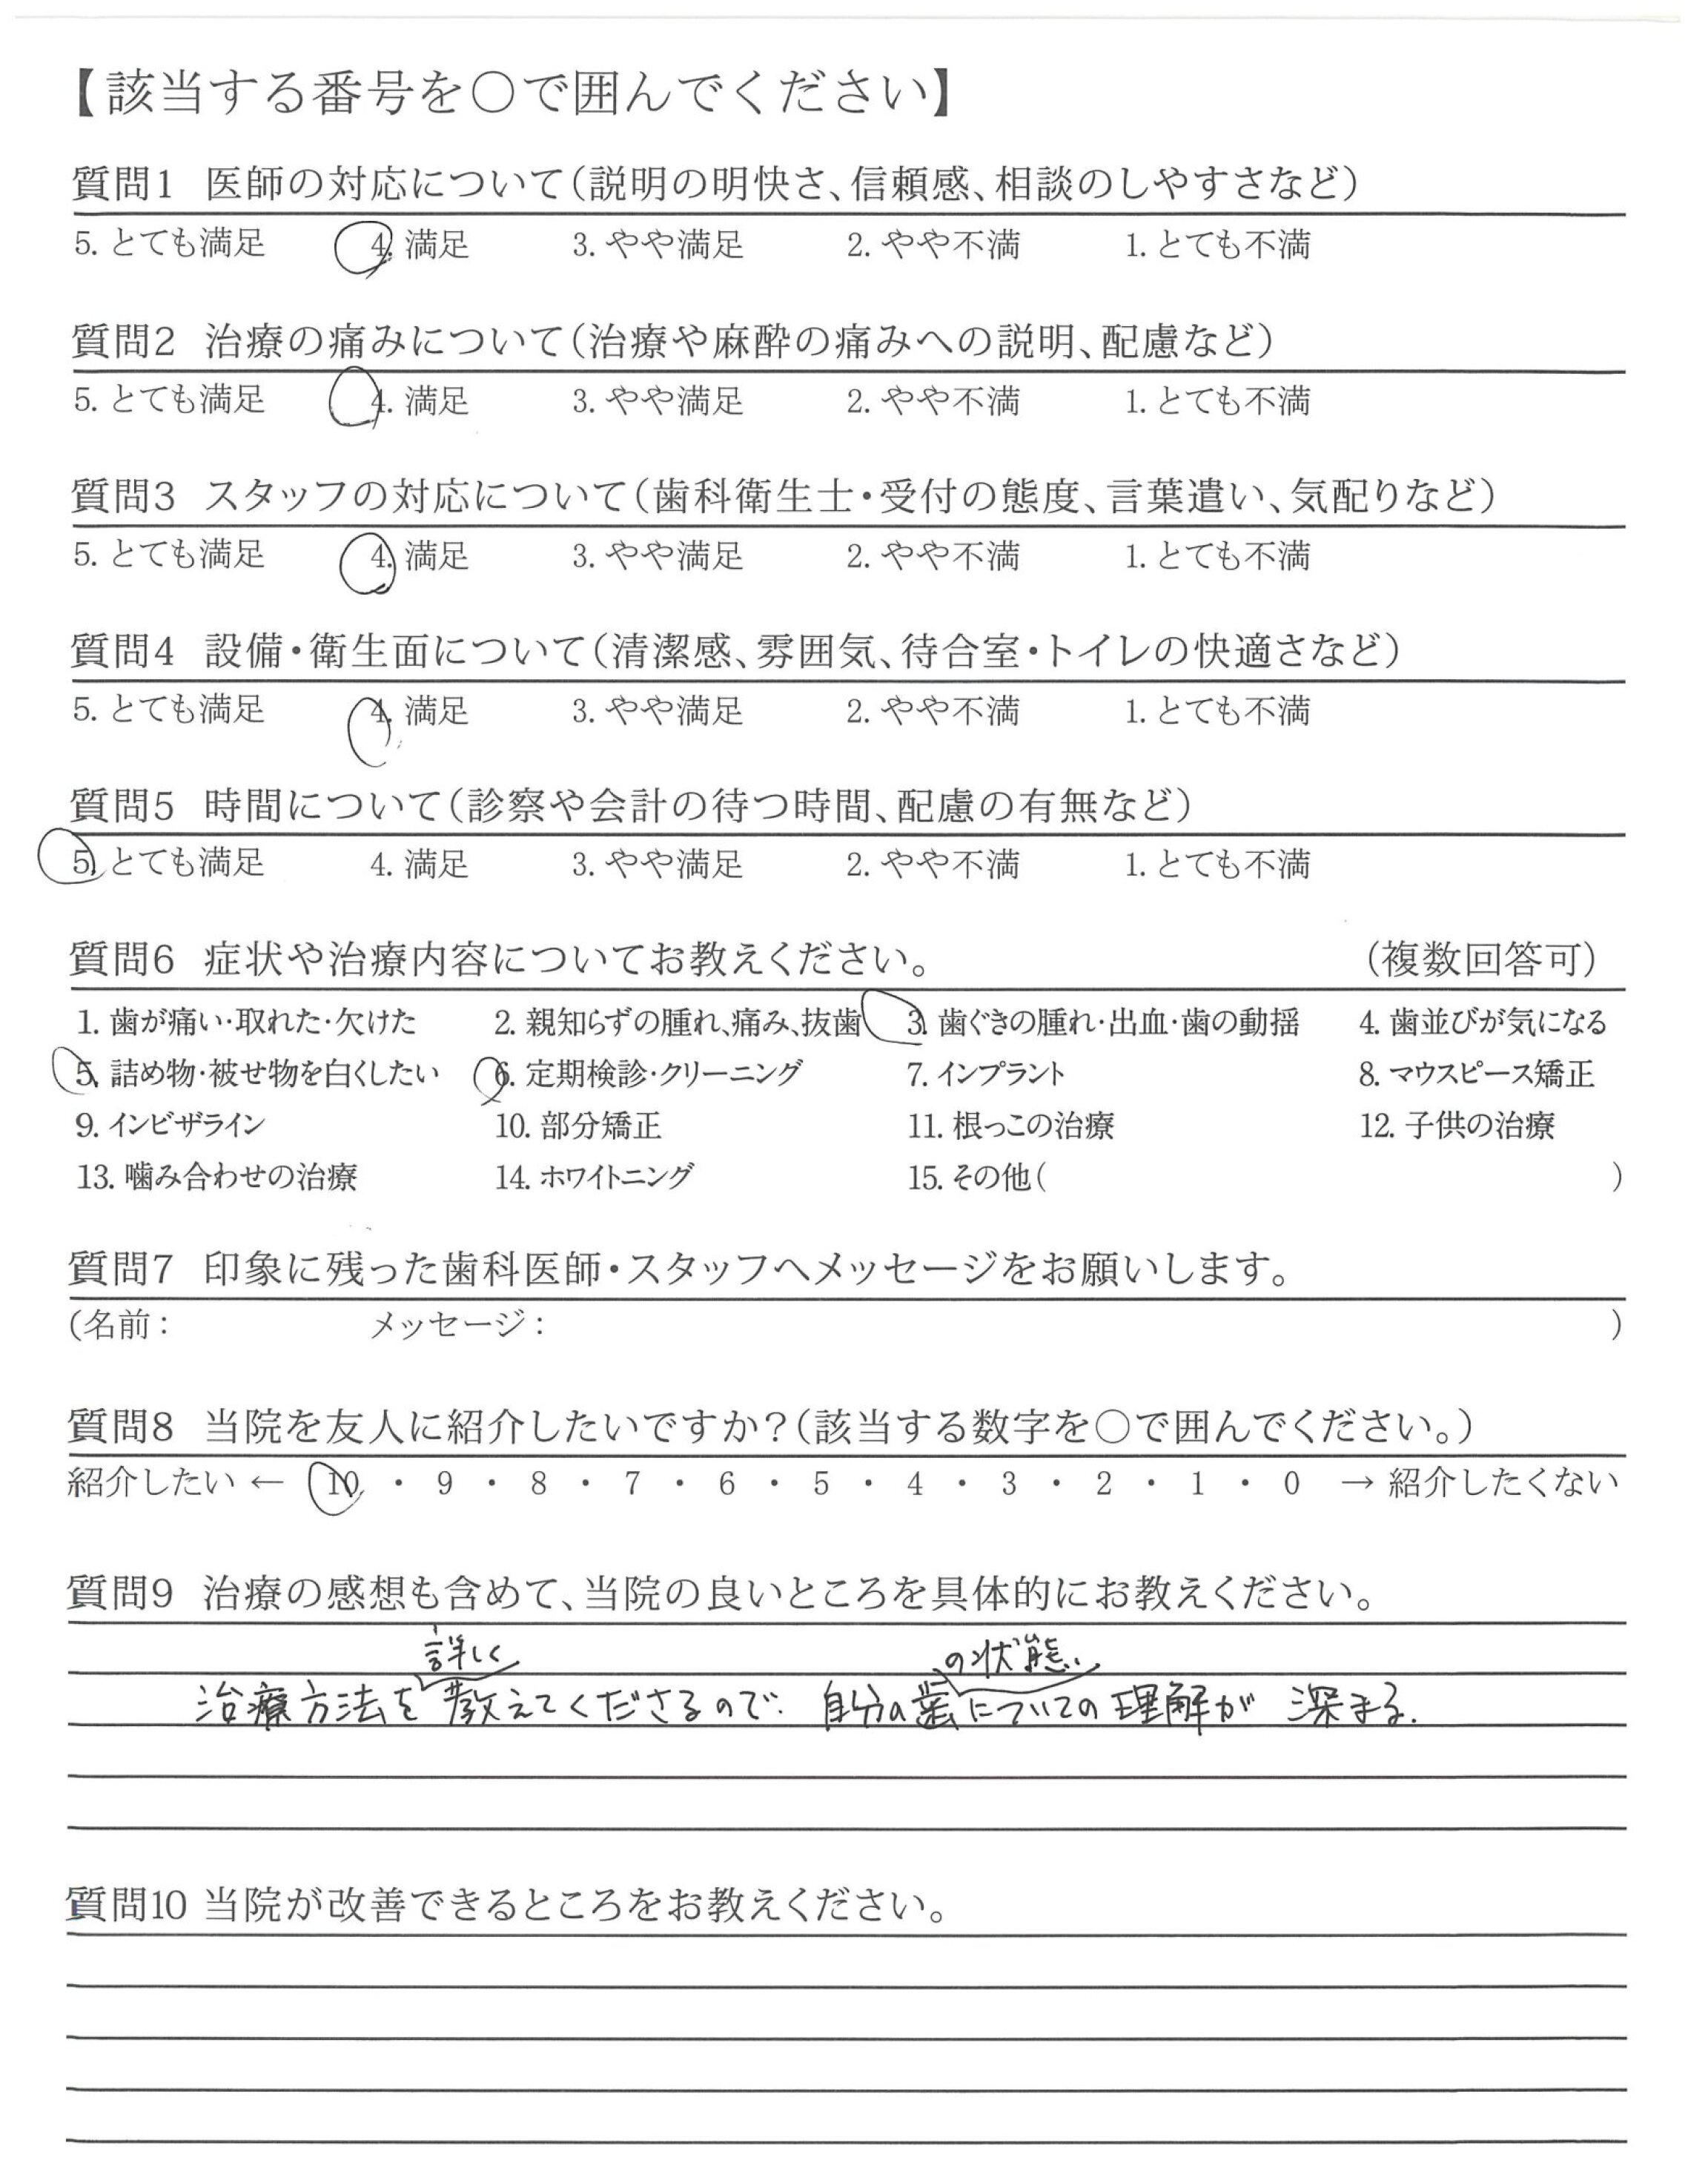 【該当する番号を○で囲んでください】
質問1 医師の対応について(説明の明快さ、信頼感、相談のしやすさなど)
5. とても満足 4. 満足 3. やや満足 2. やや不満 1. とても不満
質問2 治療の痛みについて(治療や麻酔の痛みへの説明、配慮など)
5. とても満足 4. 満足 3. やや満足 2. やや不満 1. とても不満
質問3 スタッフの対応について(歯科衛生士・受付の態度、言葉遣い、気配りなど)
5. とても満足 4. 満足 3. やや満足 2. やや不満 1. とても不満
質問4 設備・衛生面について(清潔感、雰囲気、待合室・トイレの快適さなど)
5. とても満足 4. 満足 3. やや満足 2. やや不満 1. とても不満
質問5 時間について(診察や会計の待つ時間、配慮の有無など)
5. とても満足 4. 満足 3. やや満足 2. やや不満 1. とても不満
質問6 症状や治療内容についてお教えください。 (複数回答可)
1. 歯が痛い・取れた・欠けた 2. 親知らずの腫れ、痛み、抜歯 3. 歯ぐきの腫れ・出血・歯の動揺 4. 歯並びが気になる
5. 詰め物・被せ物を白くしたい 6. 定期検診・クリーニング 7. インプラント 8. マウスピース矯正
9. インビザライン 10. 部分矯正 11. 根っこの治療 12. 子供の治療
13. 噛み合わせの治療 14. ホワイトニング 15. その他( )
質問7 印象に残った歯科医師・スタッフへメッセージをお願いします。
(名前: メッセージ: )
質問8 当院を友人に紹介したいですか?(該当する数字を○で囲んでください。)
紹介したい ← 10 ・ 9 ・ 8 ・ 7 ・ 6 ・ 5 ・ 4 ・ 3 ・ 2 ・ 1 ・ 0 → 紹介したくない
質問9 治療の感想も含めて、当院の良いところを具体的にお教えください。
詳しく の状態
治療方法を教えてくださるので、自分の歯についての理解が深まる.
質問10 当院が改善できるところをお教えください。